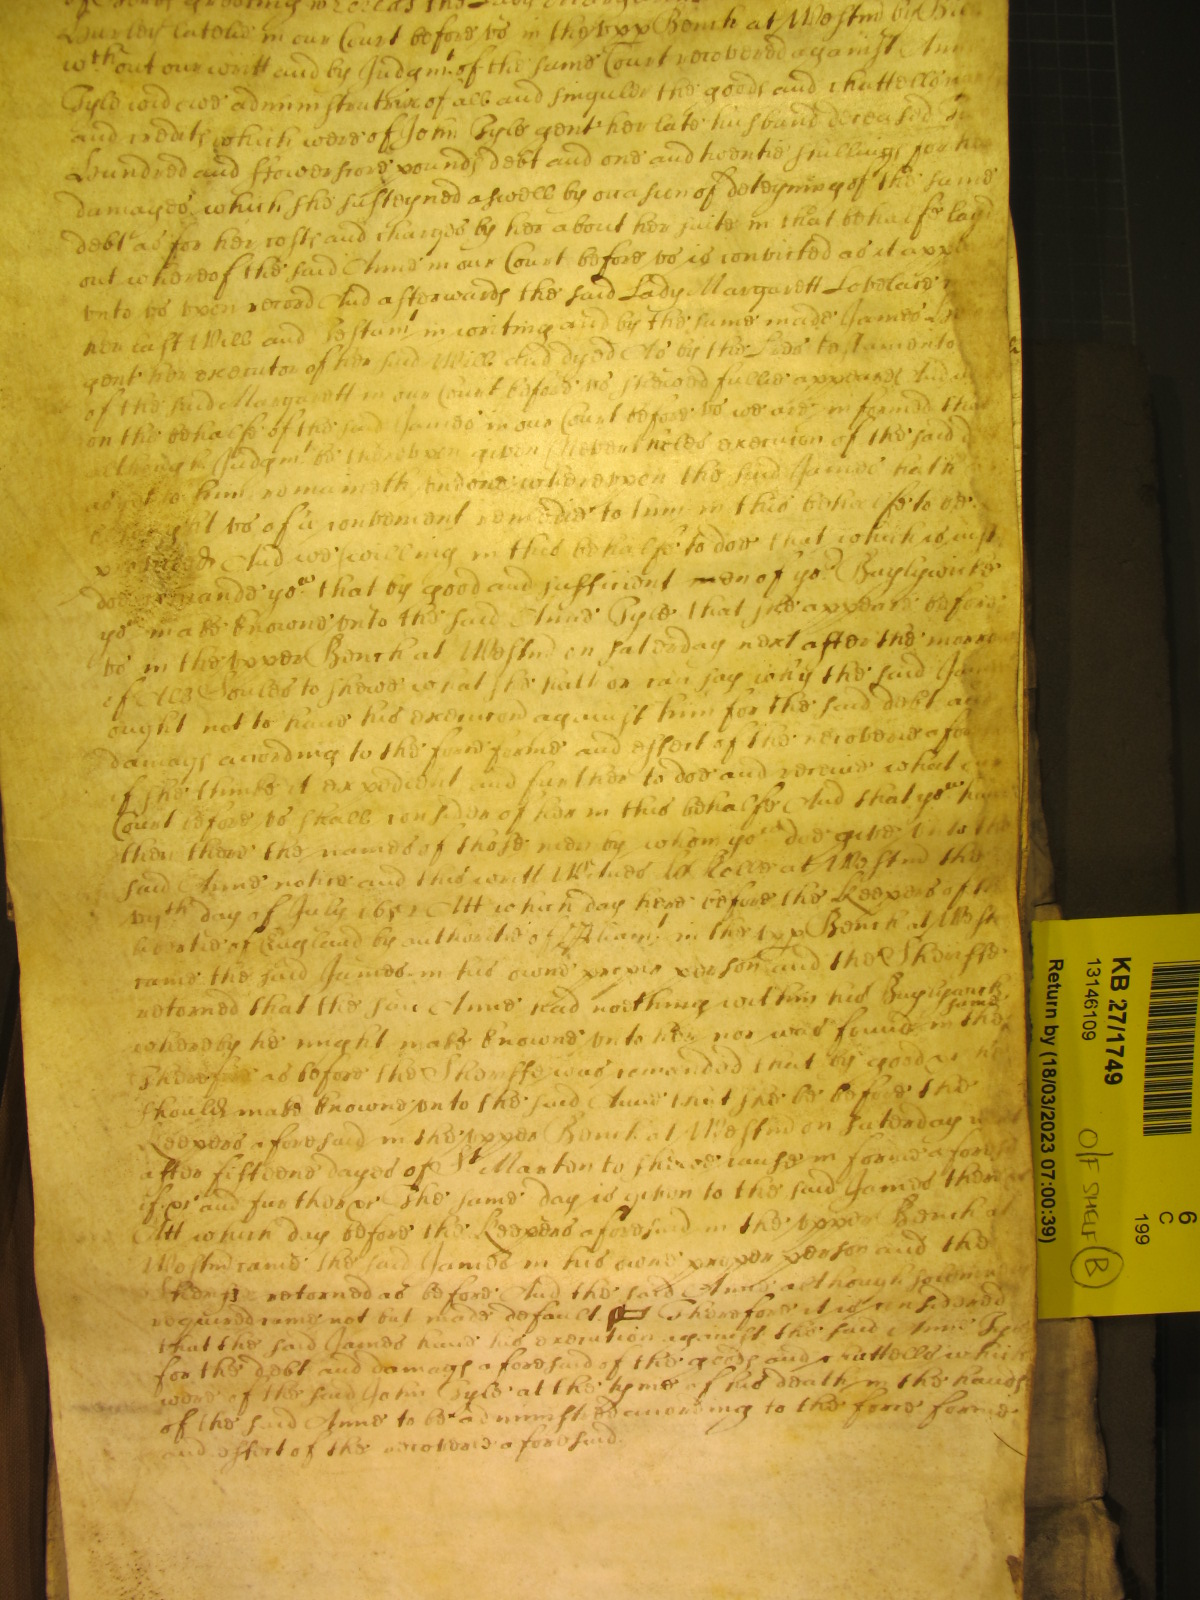 Hurley latelie in our Court before vs in the vpp Bench at Westm by Bill
wth out our writt and by Judgmt of the same Court recovered against Anne
Tyle widowe administratrix of all and singuler the goods and chattells
and creditts which were of John Tyle gent her late husband deceased
Hundred and ffowerscore pounds debt and one and twentie shillings for her
damages which she susteyned aswell by occasion of deteyning of the same
debt as for her costs and charges by her about her suite in that behalfe layd
out whereof the said Anne in our Court before vs is convicted as it app
vnto vs vpon record And afterwards the said Lady Margarett Lovelace
her last Will and Testamt in writing and by the same made James
gent her executor of her said Will And dyed As by the Lres testamento
of the said Margarett in our Court before vs shewed fullie appeares And
on the behalfe of the said James in our Court before vs we are informed that
although Judgmt be therevpon given Nevertheles execucion of the said
as yet to him remaineth vndone wherevpon the said James hath
vs of a convenient remedie to him in this behalfe to be
provided And we willing in this behalfe to doe that which is just
doe comande you that by good and sufficient men of yor Baylywicke
you make knowne vnto the said Anne Tyle that she appeare before
vs in the vpper Bench at Westm on Saterday next after the morrow
of All Soules to shewe what she hath or can say why the said James
ought not to have his execucion against him for the said debt and
damags according to the force forme and effect of the recoverie afore
if she thinke it expedient and further to doe and receive what our
Court before vs shall consider of her in this behalfe And that you have
then there the names of those men by whom you doe give vnto the
said Anne notice and this writt Witnes H Rolle at Westm the
day of July 1651 Att which day here before the Keepers of the
libertie of England by authoritie of Parliamt in the vpp Bench at Westm
came the said James in his owne proper person and the Sheriffe
retorned that the said Anne had noething within his Baylywick
whereby he might make knowne vnto her nor was found in the same
Therefore as before the Sheriffe was comanded that by good &c he
should make knowne vnto the said Anne that she be before the
Keepers aforesaid in the vpper Bench at Westm on Saterday next
after fifteene dayes of St Marten to shewe cause in forme aforesd
if &c and further &c The same day is given to the said James there &c
Att which day before the Keepers aforesaid in the vpper Bench at
Westm came the said James in his owne proper person and the
Sheriffe retorned as before And the said Anne although solemnly
required came not but made default Therefore it is considered
that the said James have his execution against the said Anne Tyle
for the debt and damags aforesaid of the goods and chattells which
were of the said John Tyle at the tyme of his death in the hands
of the said Anne to be administred according to the force forme
and effect of the recoverie aforesaid.
6
C
199
KB 27/1749
13146109
O/F SHELF B
Return by (18/03/2023 07:00:39)